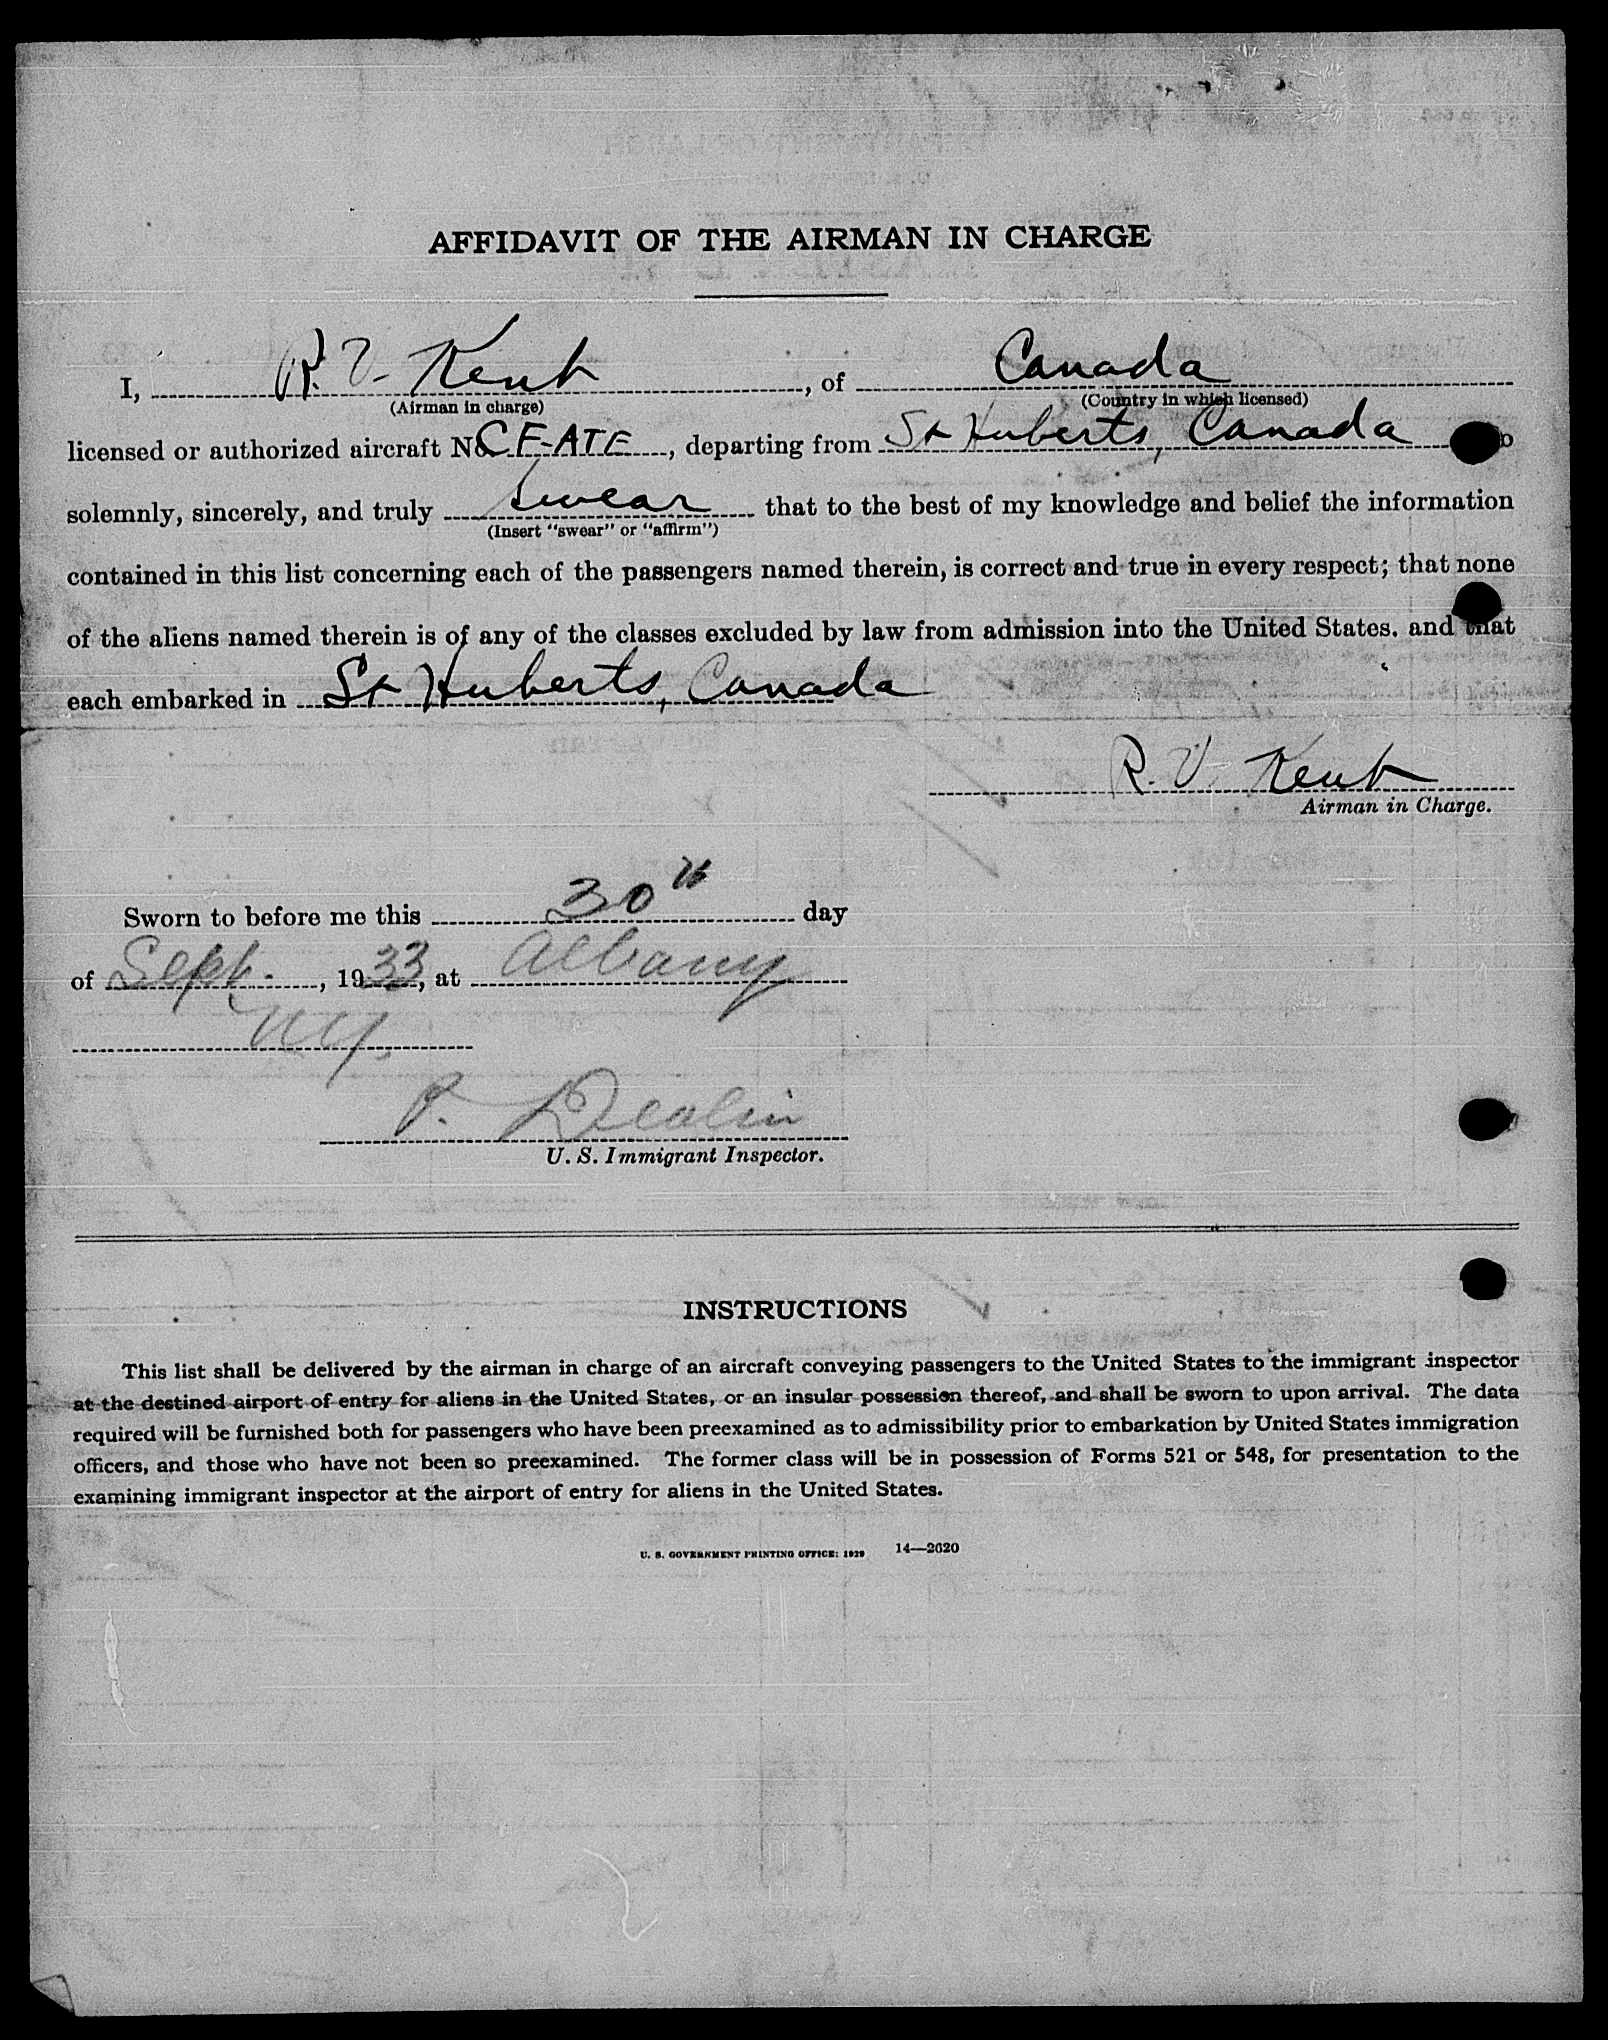 AFFIDAVIT OF THE AIRMAN IN CHARGE
I, R. V. Kent, of Canada
(Airman in charge) (Country in which licensed)
licensed or authorized aircraft No CF-ATE, departing from St Huberts, Canada
solemnly, sincerely, and truly swear that to the best of my knowledge and belief the information
(Insert "swear" or "affirm")
contained in this list concerning each of the passengers named therein, is correct and true in every respect; that none
of the aliens named therein is of any of the classes excluded by law from admission into the United States. and that
each embarked in St Huberts, Canada
R. V. Kent
Airman in Charge.
Sworn to before me this 30th day
of Sept., 1933, at Albany
NY.
P.
U. S. Immigrant Inspector.
INSTRUCTIONS
This list shall be delivered by the airman in charge of an aircraft conveying passengers to the United States to the immigrant inspector
at the destined airport of entry for aliens in the United States, or an insular possession thereof, and shall be sworn to upon arrival. The data
required will be furnished both for passengers who have been preexamined as to admissibility prior to embarkation by United States immigration
officers, and those who have not been so preexamined. The former class will be in possession of Forms 521 or 548, for presentation to the
examining immigrant inspector at the airport of entry for aliens in the United States.
U. S. GOVERNMENT PRINTING OFFICE: 1929 14—2620